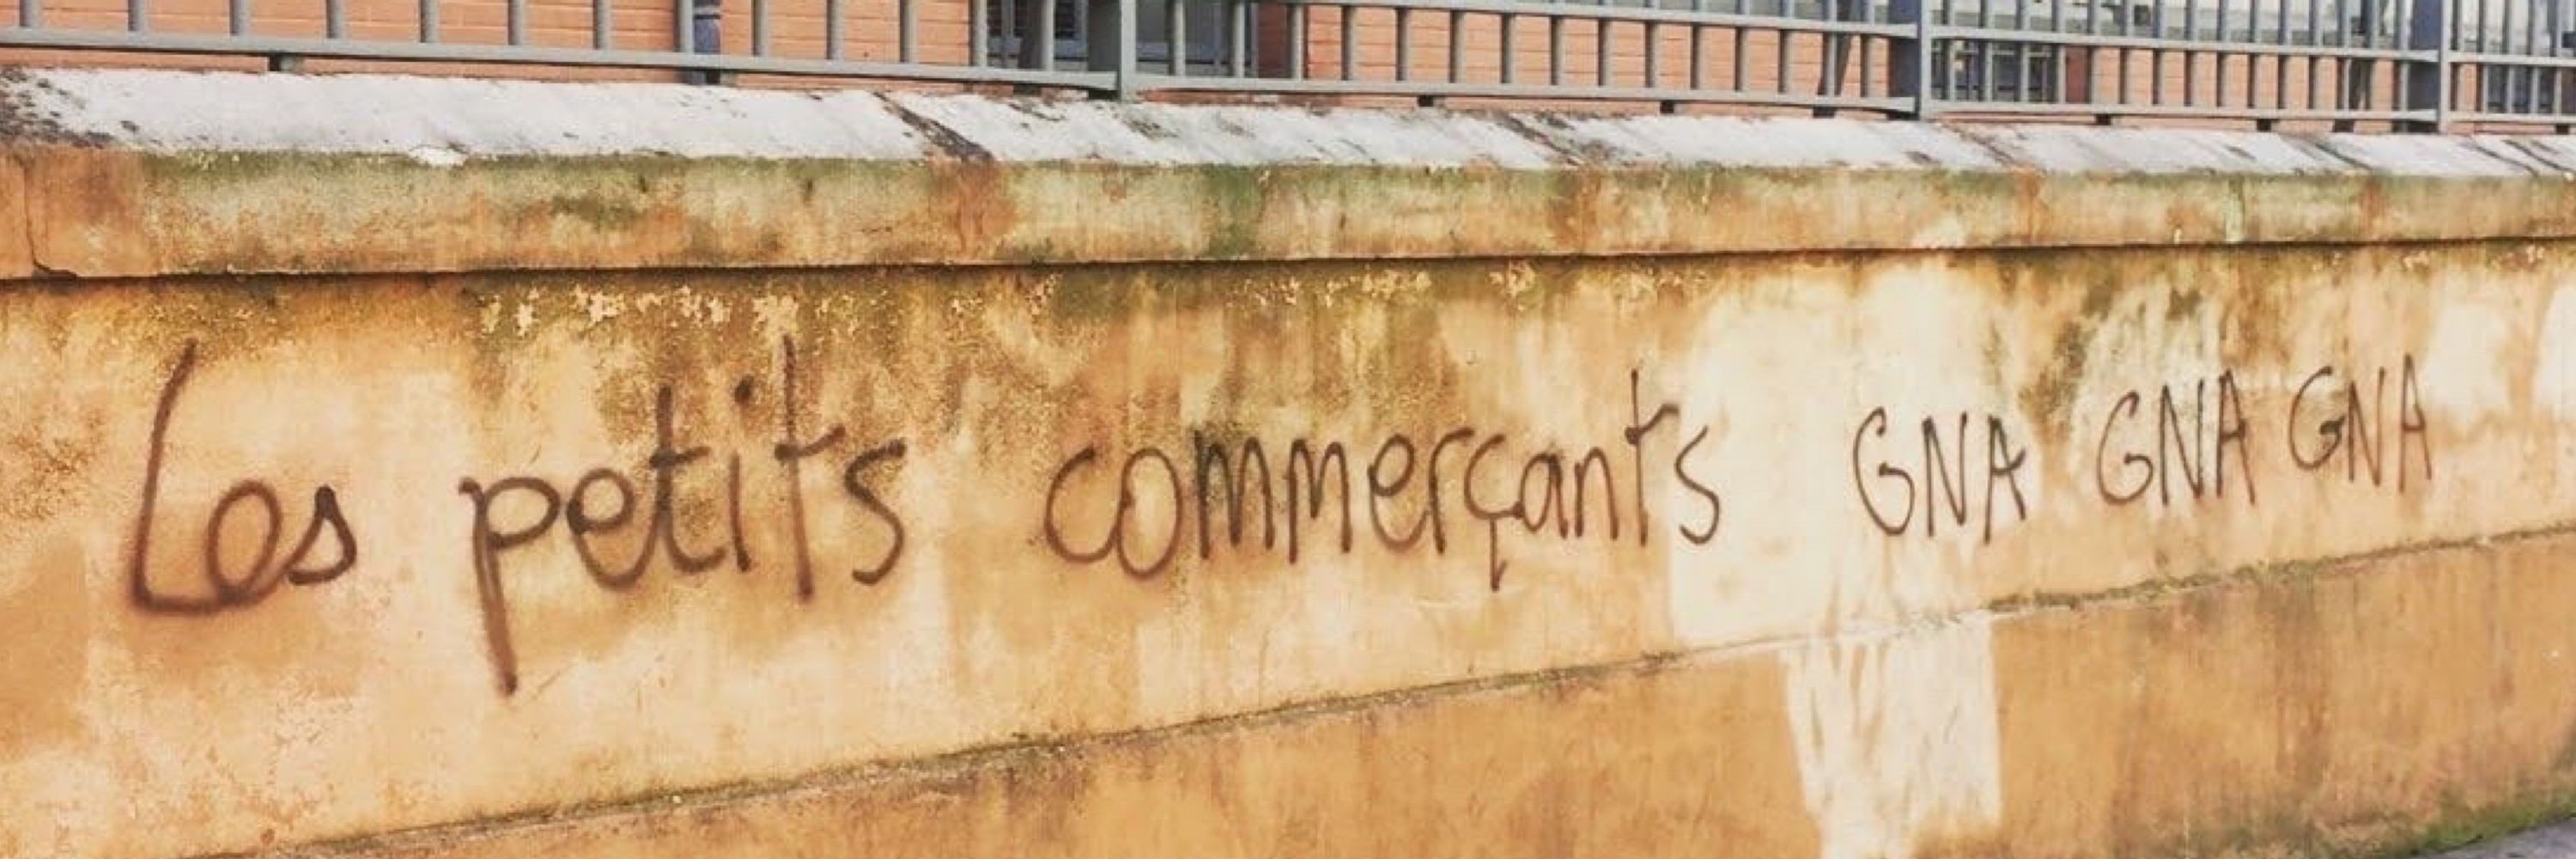 Les petits commerçants GNA GNA GNA